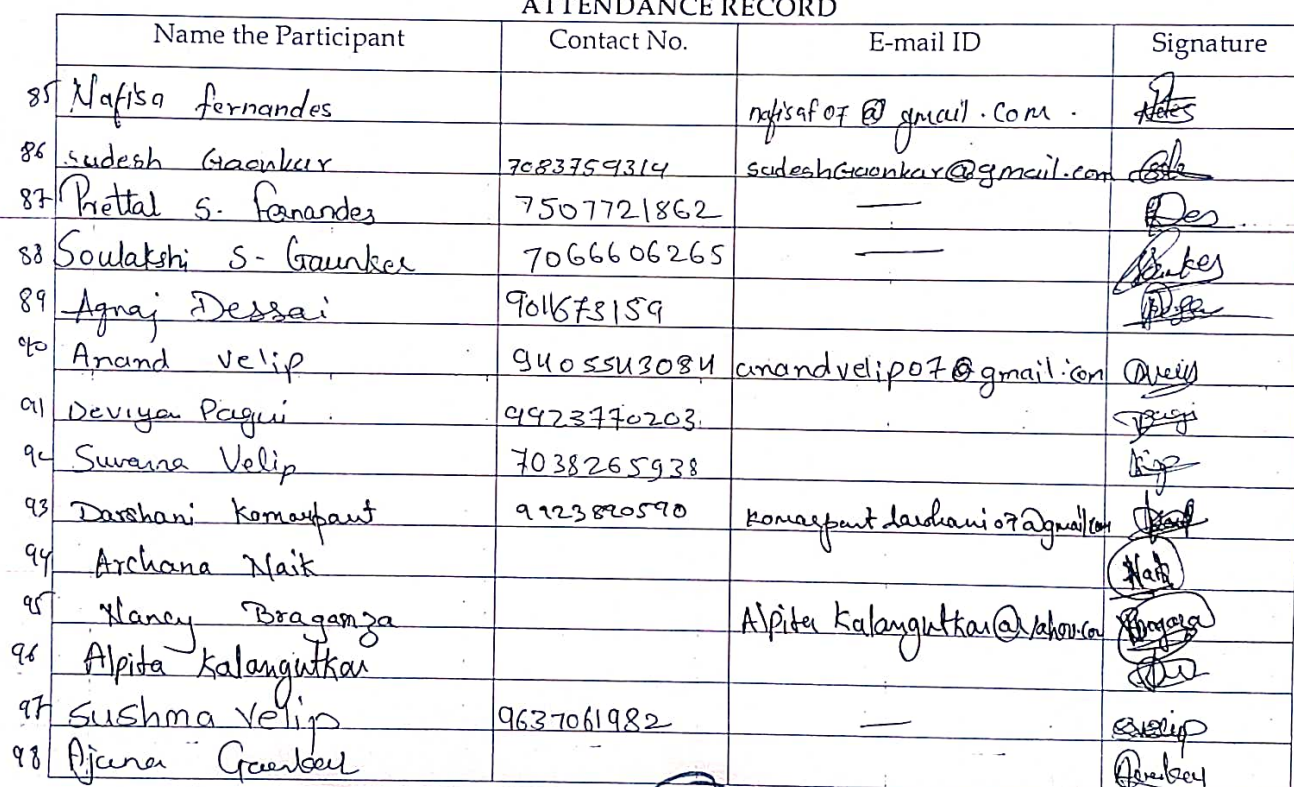 ATTENDANCE RECORD
Name the Participant Contact No. E-mail ID Signature
85 Nafisa fernandes nafisaf07@gmail.com.
86 sudesh Gaonkar 7083759314 sudeshGaonkar@gmail.com
87 Prettal S. fernandes 7507721862 — Des
88 Soulakshi S- Gaunker 7066606265 —
89 Agnaj Dessai 901673159
90 Anand velip 9405543084 anandvelip07@gmail.com
91 Deviya Pagui 9923770203
92 Suvarna Velip 7038265938
93 Darshani Komarpaut 9923890590 komarpautdarshani07@gmail.com
94 Archana Naik Naik
95 Nancy Braganza Alpita Kalangutkar@yahoo.co Braganza
96 Alpita Kalangutkar
97 sushma velip 9637061982 — svelip
98 Gaenkar